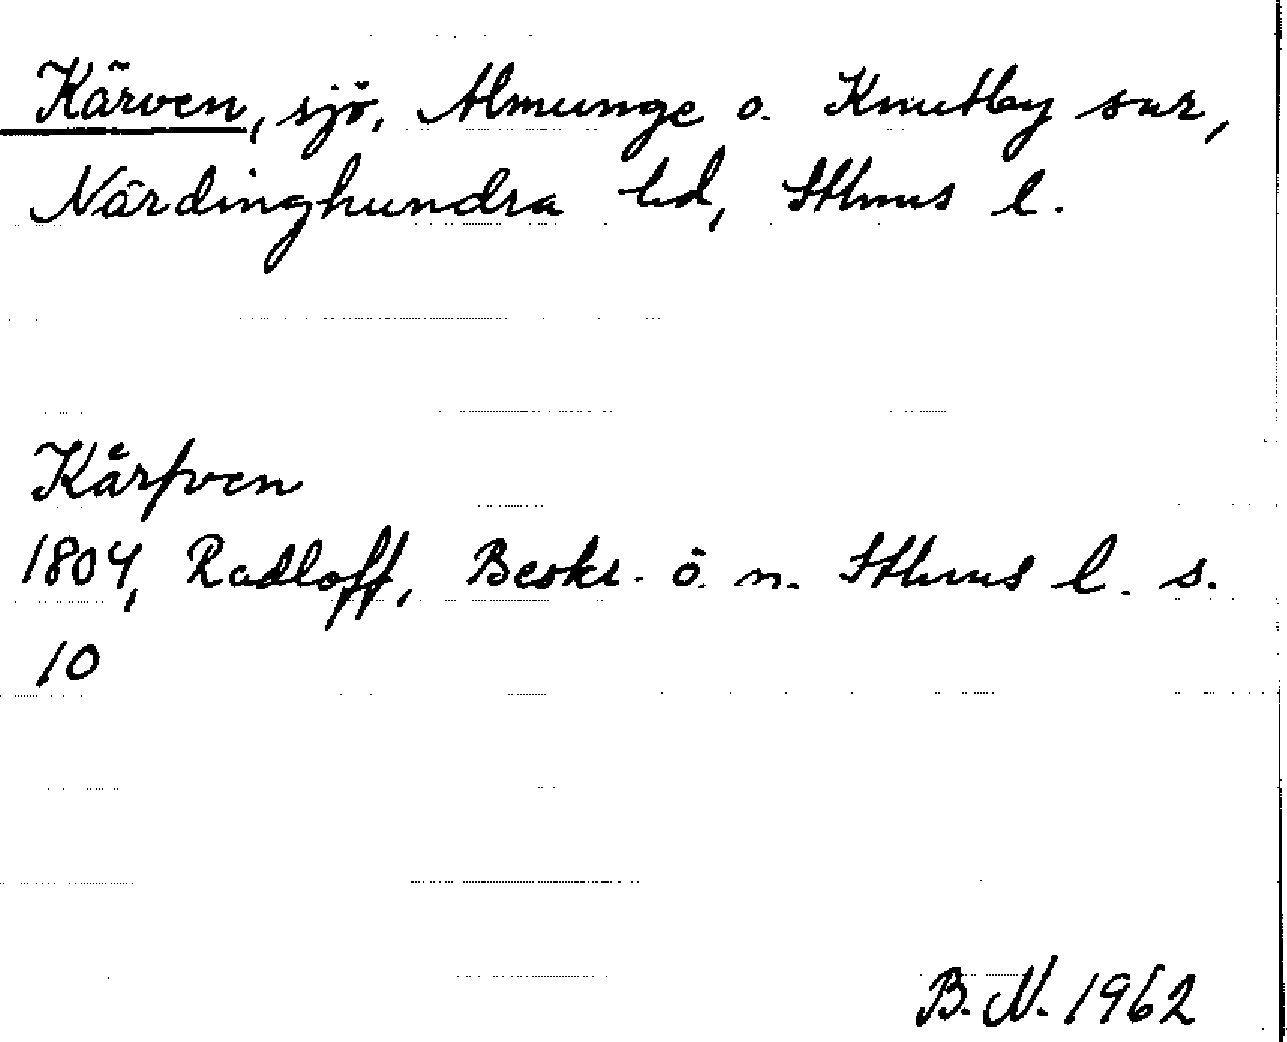 Kärven, sjö, Almunge o. Knutby snr,
Närdinghundra hd, Sthms l.
Kårfven
1804, Radloff, Beskr. ö. n. Sthms l. s.
10
B. N. 1962